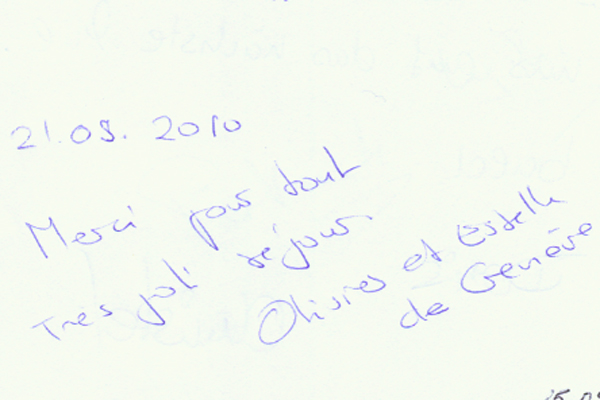 21.09.2010
Merci pour tout
Tres joli séjour
Olivier et Estelle
de Genève